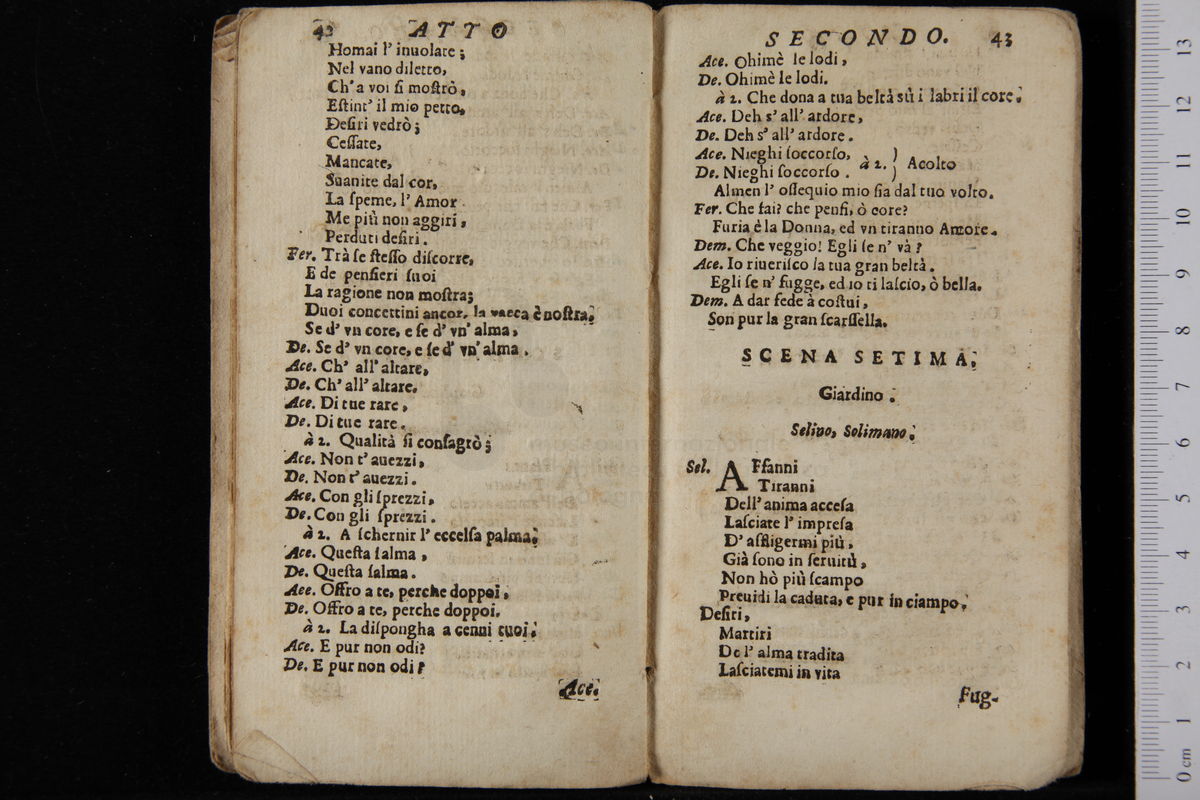 42 ATTO
Homai l' inuolate ;
Nel vano diletto,
Ch' a voi ſi moſtrò,
Eſtint' il mio petto,
Deſiri vedrò ;
Ceſſate,
Mancate,
Suanite dal cor,
La ſpeme, l' Amor.
Me più non aggiri,
Perduti deſiri.
Fer. Trà ſe ſteſſo diſcorre,
E de penſieri ſuoi
La ragione non moſtra;
Duoi concettini ancor, la vacca è noſtra.
Se d' vn core, e ſe d' vn' alma,
De. Se d' vn core, e ſe d' vn' alma.
Ace. Ch' all' altare,
De. Ch' all' altare.
Ace. Di tue rare,
De. Di tue rare.
à 2. Qualità ſi conſagrò ;
Ace. Non t' auezzi,
De. Non t' auezzi.
Ace. Con gli ſprezzi,
De. Con gli ſprezzi.
à 2. A ſchernir l' eccelſa palma.
Ace. Queſta ſalma,
De. Queſta ſalma.
Ace. Offro a te, perche doppoi,
De. Offro a te, perche doppoi.
à 2. La diſpongha a cenni tuoi.
Ace. E pur non odi?
De. E pur non odi?
Ace.
SECONDO. 43
Ace. Ohimè le lodi,
De. Ohimè le lodi.
à 2. Che dona a tua beltà sù i labri il core.
Ace. Deh s' all' ardore,
De. Deh s' all' ardore.
Ace. Nieghi ſoccorſo, à 2. ) Acolto
De. Nieghi ſoccorſo. )
Almen l' oſſequio mio ſia dal tuo volto.
Fer. Che fai? che penſi, ò core?
Furia è la Donna, ed vn tiranno Amore.
Dem. Che veggio! Egli ſe n' và?
Ace. Io riueriſco la tua gran beltà.
Egli ſe n' fugge, ed io ti laſcio, ò bella.
Dem. A dar fede à coſtui,
Son pur la gran ſcarſſella.
SCENA SETIMA.
Giardino.
Selino, Solimano.
Sel. AFfanni
Tiranni
Dell' anima acceſa
Laſciate l' impreſa
D' affligermi più,
Già ſono in ſeruitù,
Non hò più ſcampo
Preuidi la caduta, e pur in ciampo.
Deſiri,
Martiri
De l' alma tradita
Laſciatemi in vita
Fug-